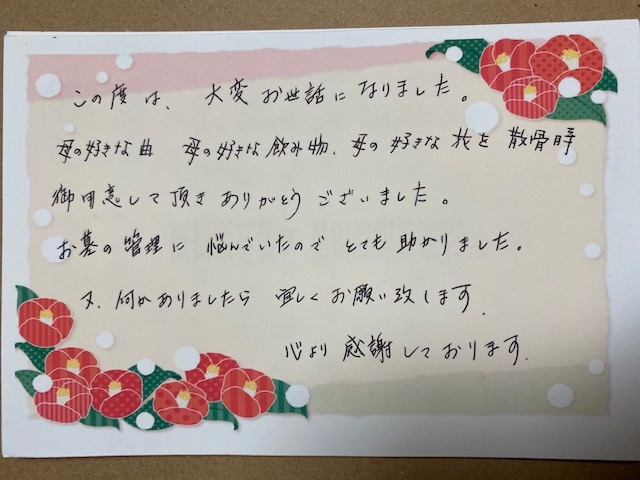 この度は、大変お世話になりました。
母の好きな曲 母の好きな飲み物、母の好きな花を 散骨時
御用意して頂き ありがとう ございました。
お墓の管理に 悩んでいたので とても 助かりました。
又、何かありましたら 宜しくお願い致します.
心より 感謝しております.